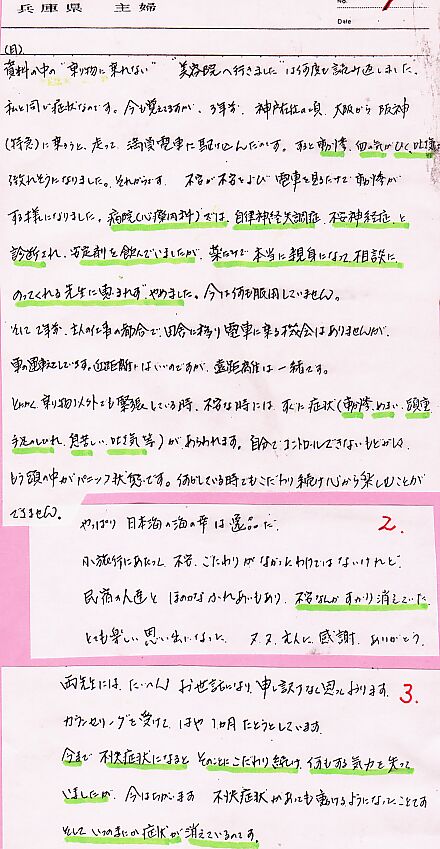 兵庫県 主婦
No.
Date
(日)
資料の中の"乗り物に乗れない" "美容院へ行きました"は何度も読み返しました。
私と同じ症状なのです。今も覚えてますが、3年前、神戸在住の頃、大阪から阪神
(特急)に乗ろうと、走って 満員電車に駆け込んだのです。すると動悸、血の気がひく、吐き気
倒れそうになりました。それからです。 不安が不安をよび 電車を見るだけで動悸が
する様になりました。病院(心療内科)では、自律神経失調症、不安神経症、と
診断され、安定剤を飲んでいましたが、薬だけで本当に親身になって相談に
のってくれる先生に恵まれず やめました。今は何も服用していません。
そして2年前、主人の仕事の都合で、田舎に移り電車に乗る機会はありませんが、
車の運転はしています。近距離はいいのですが、遠距離は一緒です。
とにかく 乗り物以外でも緊張している時、不安な時には すぐに症状(動悸、めまい、頭重
手足のしびれ、息苦しい、吐き気等)があらわれます。自分でコントロールできないもどかしさ、
もう頭の中がパニック状態です。何かしている時でもこだわり続け心から楽しむことが
できません。
2.
やっぱり 日本海の海の幸は逸品だ。
小旅行にあたって 不安、こだわりがなかったわけではないけれど、
民宿の人達と ほのかなふれあいもあり、不安なんかすっかり消えていた
とても楽しい思い出になった。 又、又、主人に感謝、ありがとう。
3.
両先生には、たいへん お世話になり、申し訳なく思っております。
カウンセリングを受けて、はや1カ月たとうとしています。
今まで 不快症状になると そのことにこだわり続け、何もする気力を失って
いましたが、今はちがいます 不快症状があっても動けるようになったことです
そして いつのまにか症状が消えているのです。